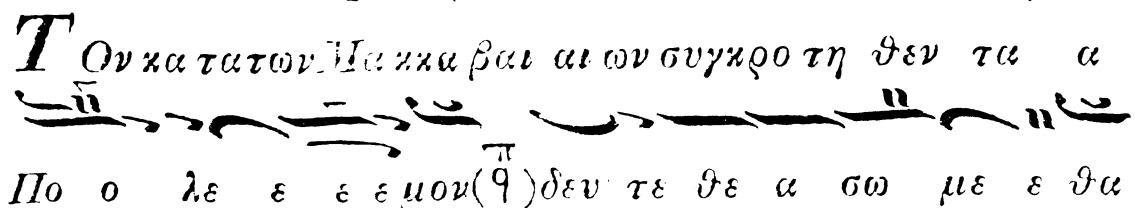 ΤΟν κα τα των Μα κκα βαι αι ων συγκρο τη θεν τα α
Πο ο λε ε ε ε μον (π ϥ) δευ τε θε α σω με ε θα